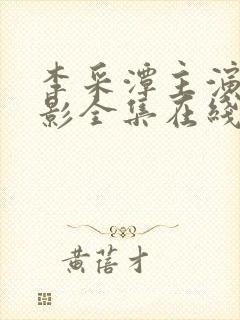 李采潭主演
影全集在线
黄蓓才